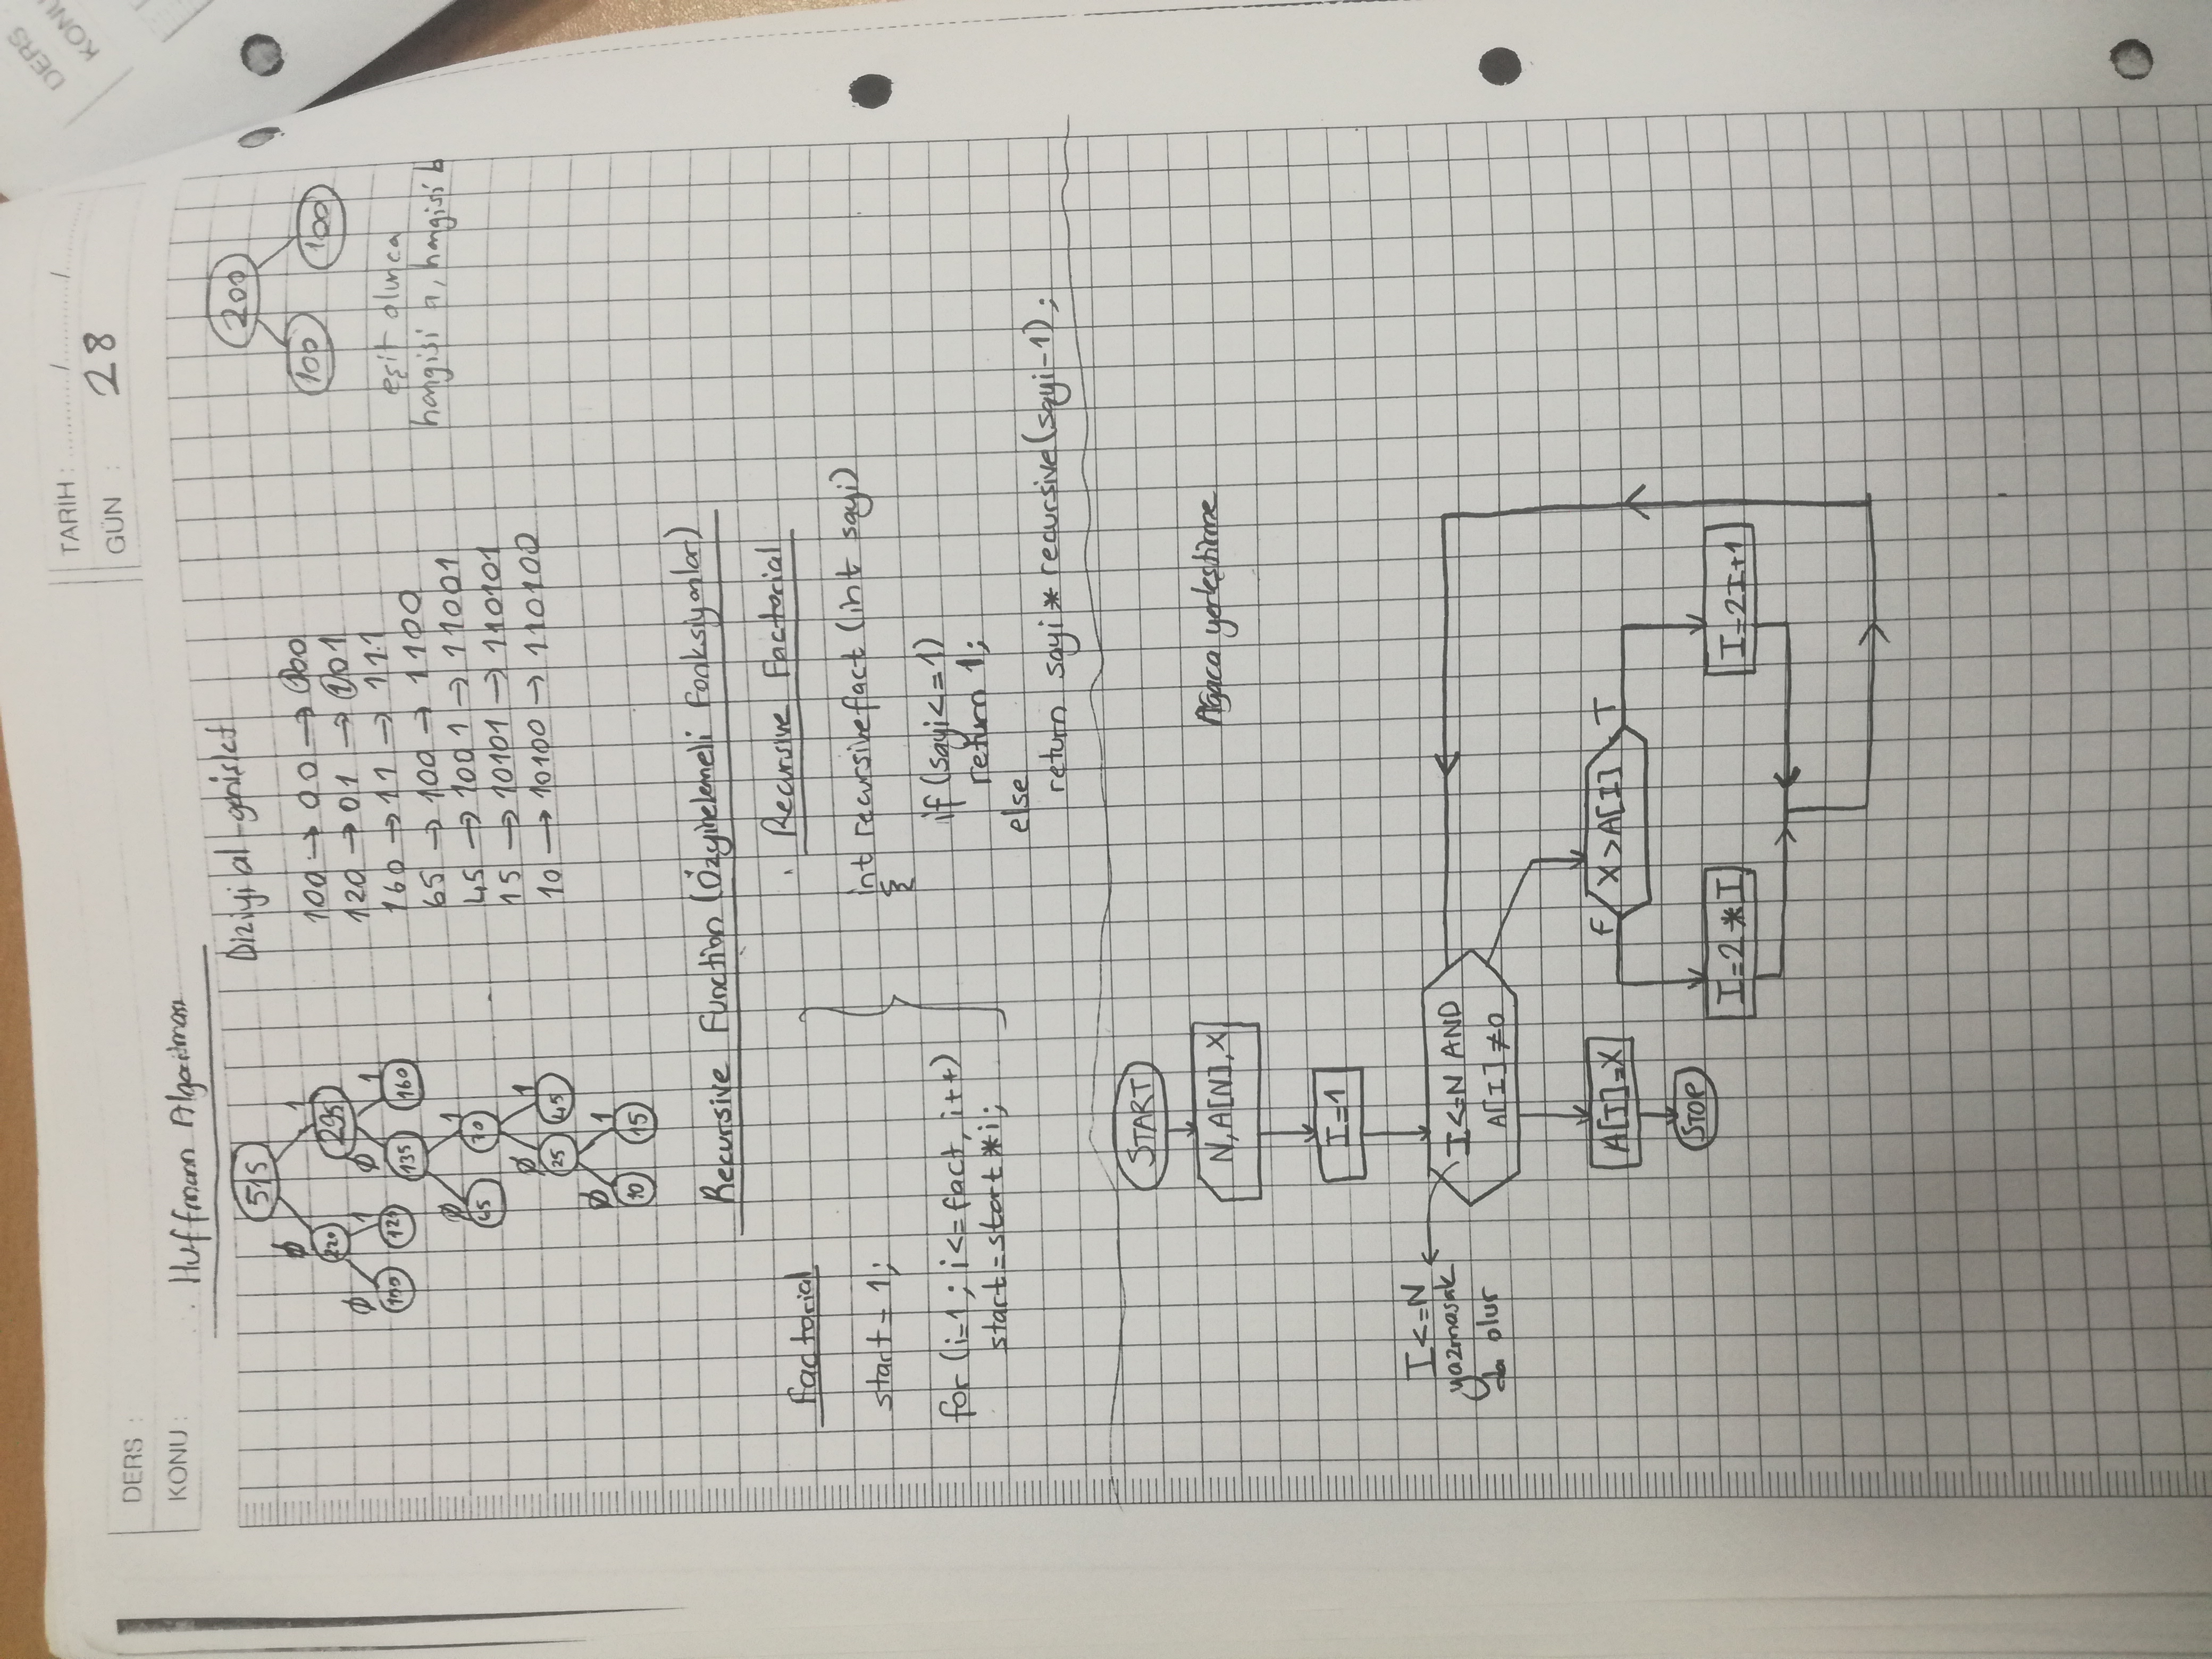 TARİH : ............/............/............
GÜN : 28
DERS :
KONU : Huffmann Algoritması
515
Ø 1
220 295
Ø 1 Ø 1
100 120 135 160
Ø 1
65 70
Ø 1
25 45
Ø 1
10 15
Diziyi al genişlet
100 → 00 → 100
120 → 01 → 101
160 → 11 → 111
65 → 100 → 1100
45 → 1001 → 11001
15 → 10101 → 110101
10 → 10100 → 110100
200
100 100
eşit olunca
hangisi a, hangisi b
Recursive Function (Özyinelemeli Fonksiyonlar)
factorial
start = 1;
for (i=1; i<=fact, i++)
start = start * i;
Recursive Factorial
int recursivefact (int sayi)
{
if (sayi<=1)
return 1;
else
return sayi * recursive(sayi-1);
START
N, A[N], X
Ağaca yerleştirme
I=1
I<=N
yazmasak
da olur
I<=N AND
A[I] ≠0
A[I]=X
F X>A[I] T
STOP
I=2*I
I=2I+1
DERS
KONU